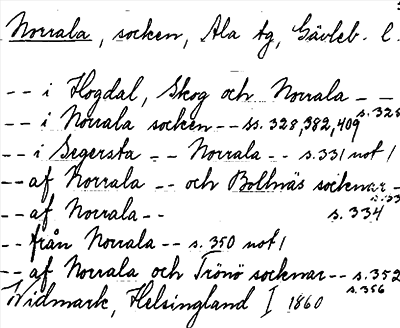 Norrala, socken, Ala tg, Gävleb. l.
-- i Hogdal, Skog och Norrala -- s.328
-- i Norrala socken -- ss. 328, 382, 409
-- i Segersta -- Norrala -- s.331 not 1
-- af Norrala -- och Bollnäs socknar -
-- af Norrala -- s. 334
-- från Norrala -- s. 350 not 1
-- af Norrala och Trönö socknar -- s.352
s.356
Widmark, Helsingland I 1860